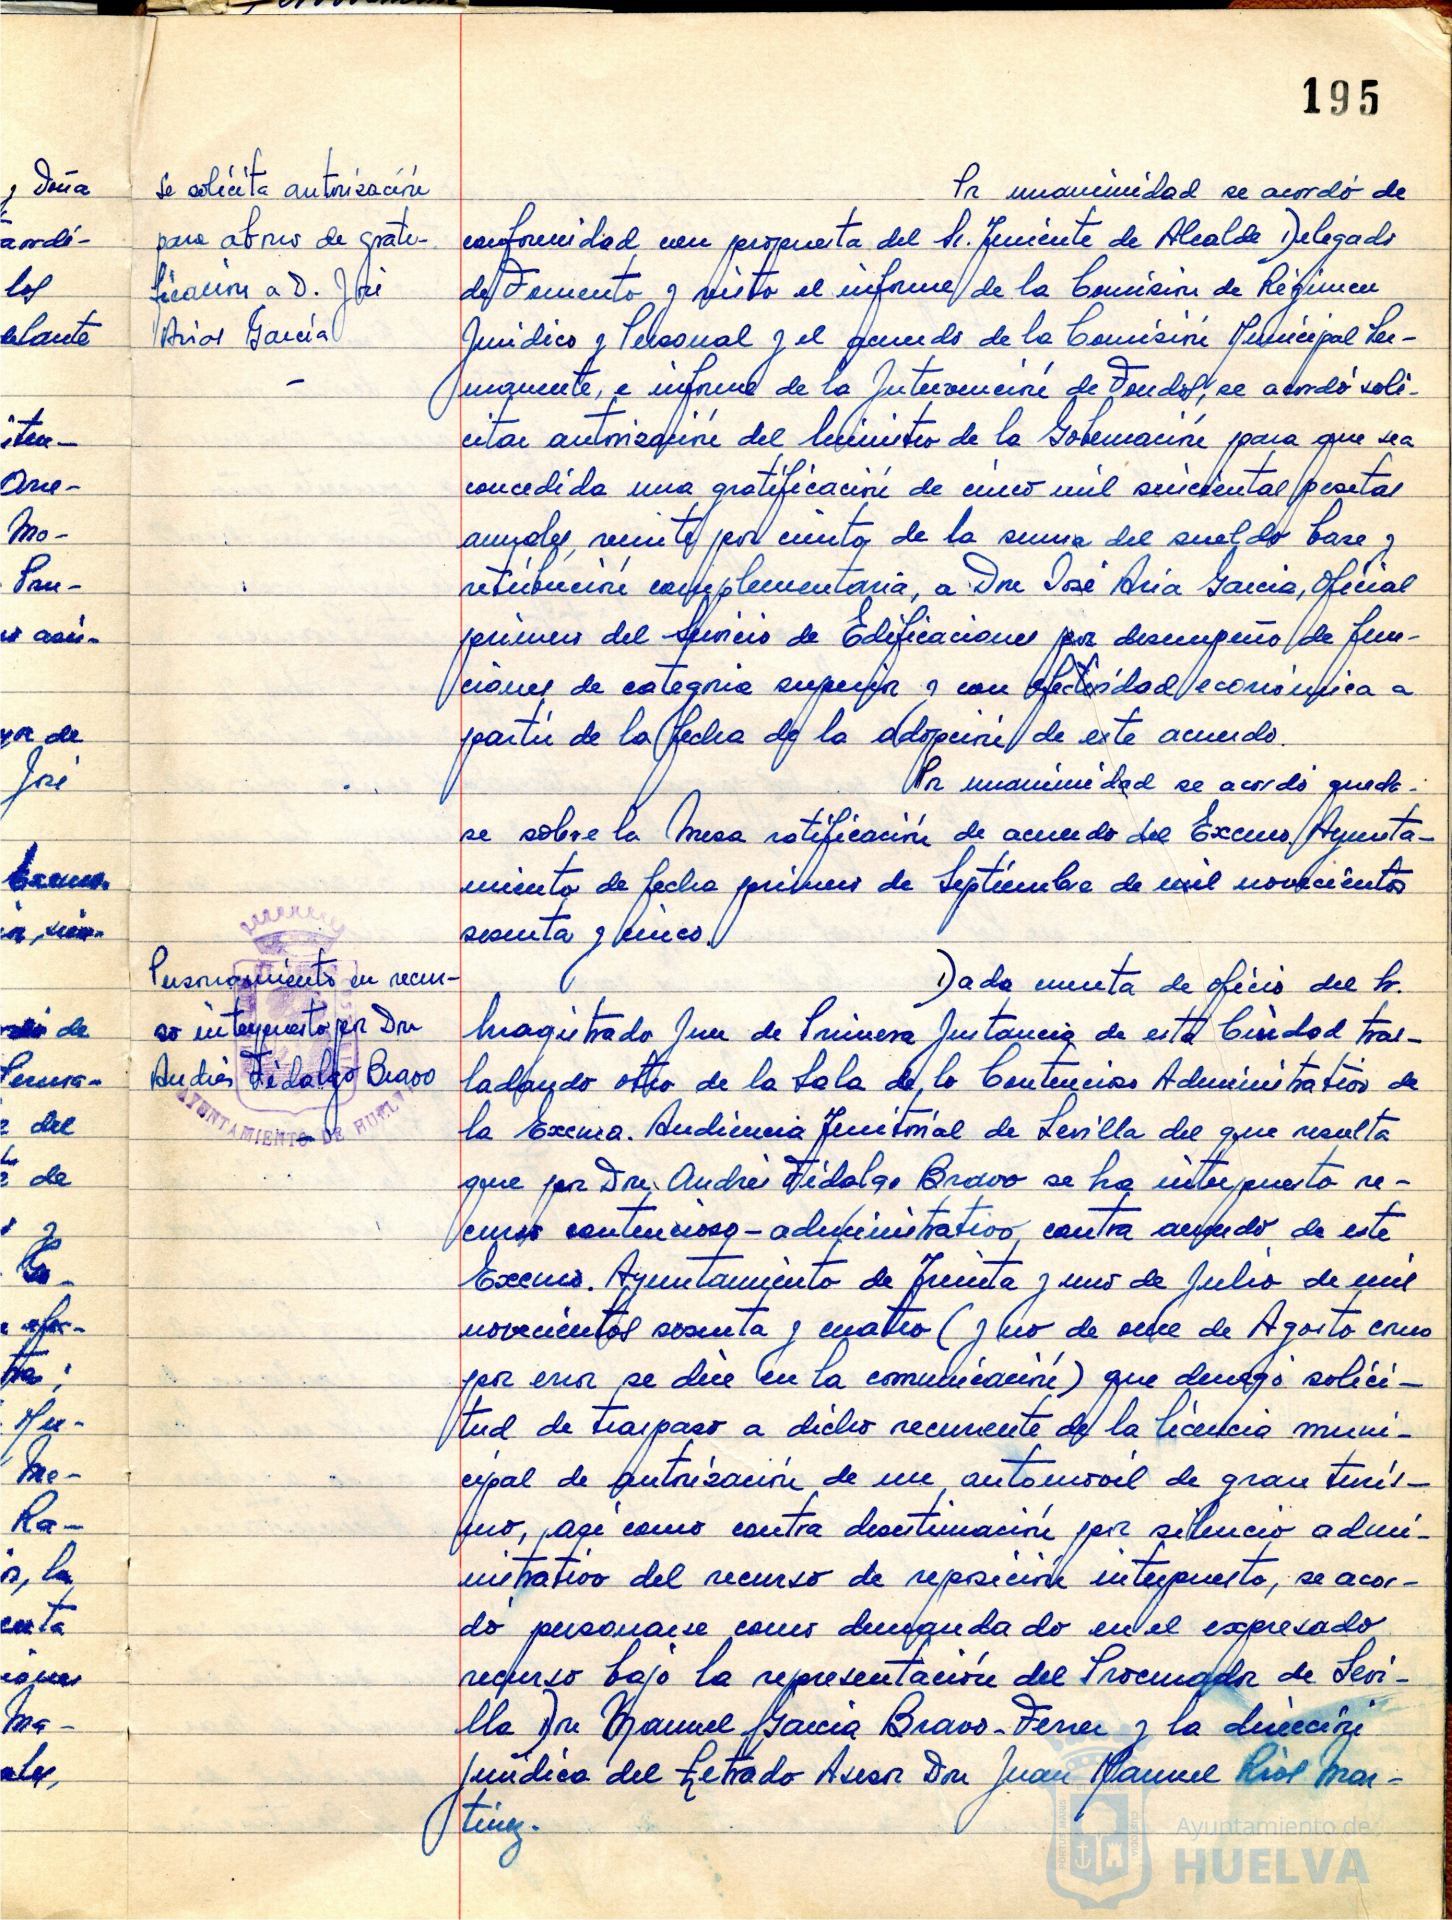 195
Se solicita autorización
para abono de grati-
ficación a D. José
Arias García
Por unanimidad se acordó de
conformidad con propuesta del Sr. Teniente de Alcalde Delegado
de Fomento y visto el informe de la Comisión de Régimen
Jurídico y Personal y el acuerdo de la Comisión Municipal Per-
manente, e informe de la Intervención de Fondos, se acordó soli-
citar autorización del Ministro de la Gobernación para que sea
concedida una gratificación de cinco mil seiscientas pesetas
anuales, veinte por ciento de la suma del sueldo base y
retribución complementaria, a Don José Aria Garcia, Oficial
primero del Servicio de Edificaciones por desempeño de fun-
ciones de categoria superior y con efectividad económica a
partir de la fecha de la adopción de este acuerdo.
Por unanimidad se acordó queda-
se sobre la Mesa ratificación de acuerdo del Excmo. Ayunta-
miento de fecha primero de Septiembre de mil novecientos
sesenta y cinco.
Personamiento en recur-
so interpuesto por Don
Andrés Fidalgo Bravo
AYUNTAMIENTO DE HUELVA
Dada cuenta de oficio del Sr.
Magistrado Juez de Primera Instancia de esta Ciudad tras-
ladando otro de la Sala de lo Contencioso Administrativo de
la Excma. Audiencia Territorial de Sevilla del que resulta
que por Don Andrés Fidalgo Bravo se ha interpuesto re-
curso contencioso-administrativo contra acuerdo de este
Excmo. Ayuntamiento de Treinta y uno de Julio de mil
novecientos sesenta y cuatro (y no de once de Agosto como
por error se dice en la comunicación) que denegó solici-
tud de traspaso a dicho recurrente de la licencia muni-
cipal de autorización de un automovil de gran turis-
mo, asi como contra desestimación por silencio admi-
nistrativo del recurso de reposición interpuesto, se acor-
dó personarse como demandado en el expresado
recurso bajo la representación del Procurador de Sevi-
lla Don Manuel Garcia Bravo-Ferrer y la dirección
jurídica del Letrado Asesor Don Juan Manuel Rios Mar-
tinez.
Ayuntamiento de
HUELVA